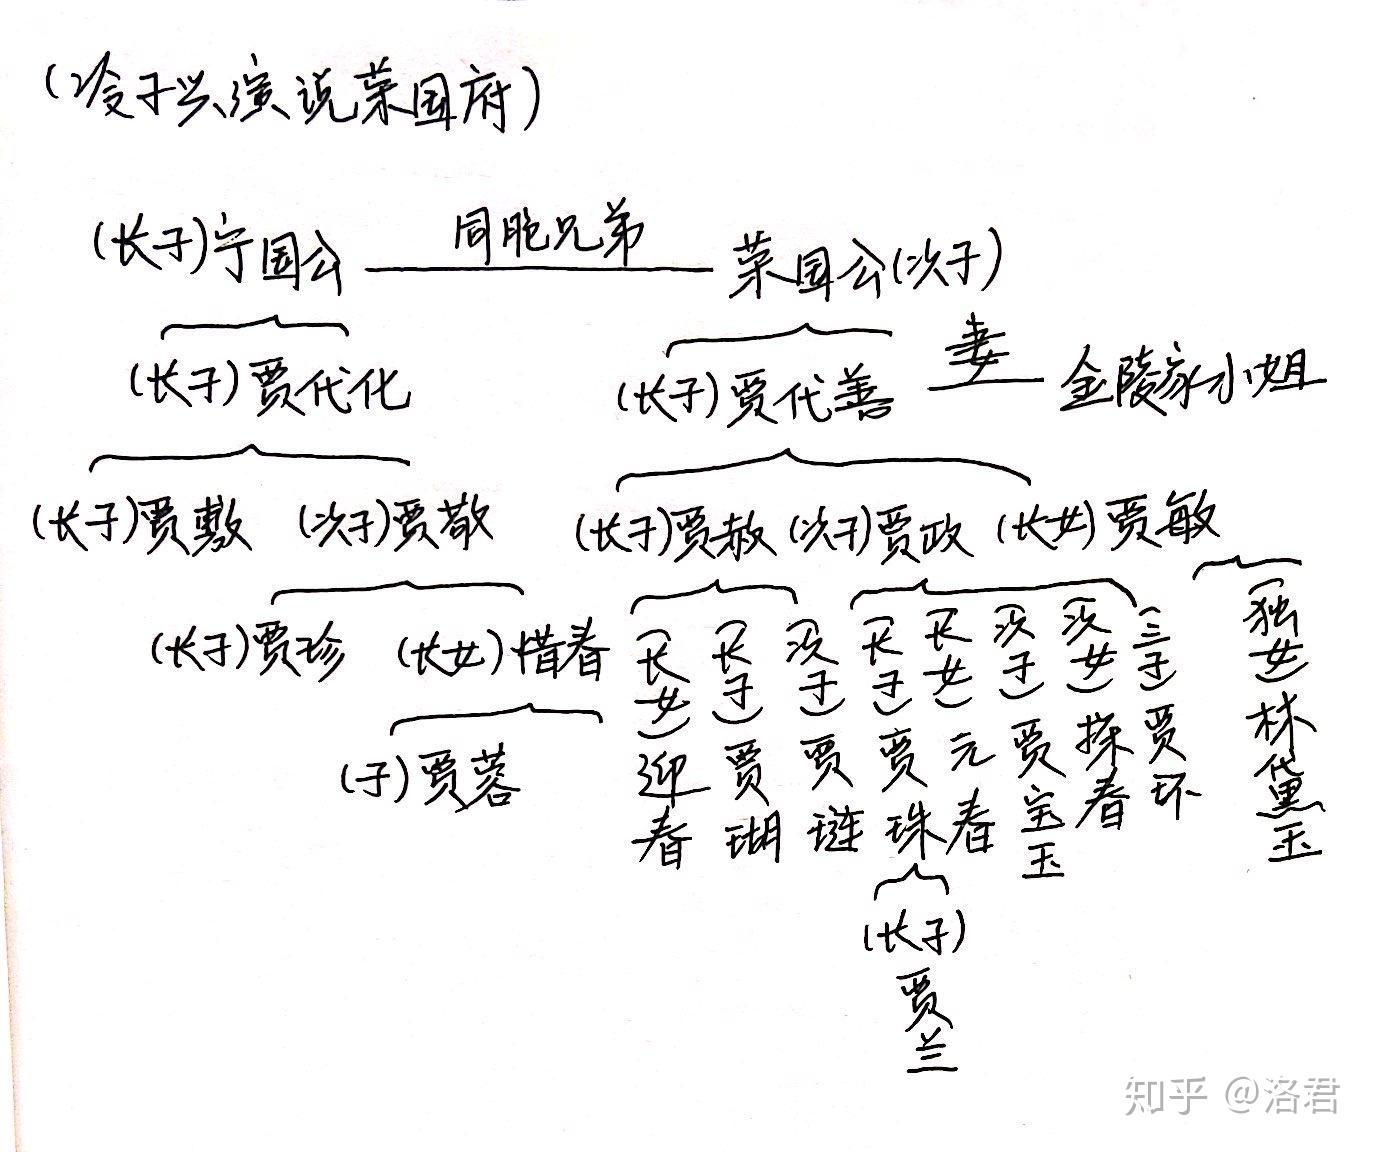 (冷子兴演说荣国府)
(长子)宁国公 同胞兄弟 荣国公(次子)
(长子)贾代化 (长子)贾代善 妻 金陵家小姐
(长子)贾敷 (次子)贾敬 (长子)贾赦 (次子)贾政 (长女)贾敏
(长子)贾珍 (长女)惜春
(长女)迎春
(长子)贾瑚
(次子)贾琏
(长子)贾珠
(长女)元春
(次子)贾宝玉
(次女)探春
(三子)贾环
(独女)林黛玉
(子)贾蓉
(长子)
贾兰
知乎 @洛君